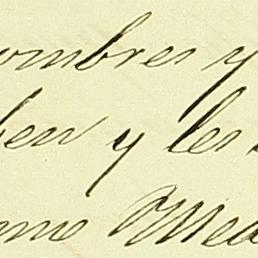 ombres y
ben y les
me Med